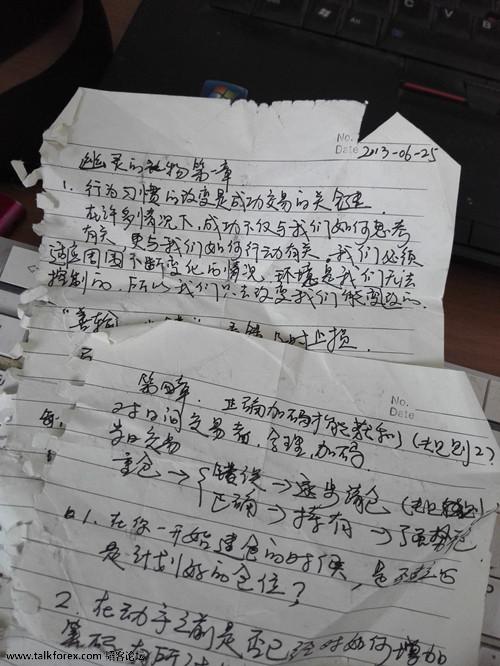 No.
Date 2013-06-25
幽灵的礼物第一章
1. 行为习惯的改变是成功交易的关键.
在许多情况下,成功不仅与我们如何思考
有关,更与我们如何行动有关.我们必须
适应周围不断变化的情况,环境是我们无法
控制的,所以我们只去改变我们能变的.
及时止损.
No.
Date
第四章. 正确加码才能获利(规则2)
对日间交易者,合理加码
当日交易
建仓→ 错误→逐步清仓
正确→持有→
1. 在你一开始建仓的时候,是不是
是计划好的仓位?
2. 在动手之前是否已经对如何增加
www.talkforex.com 韬客论坛